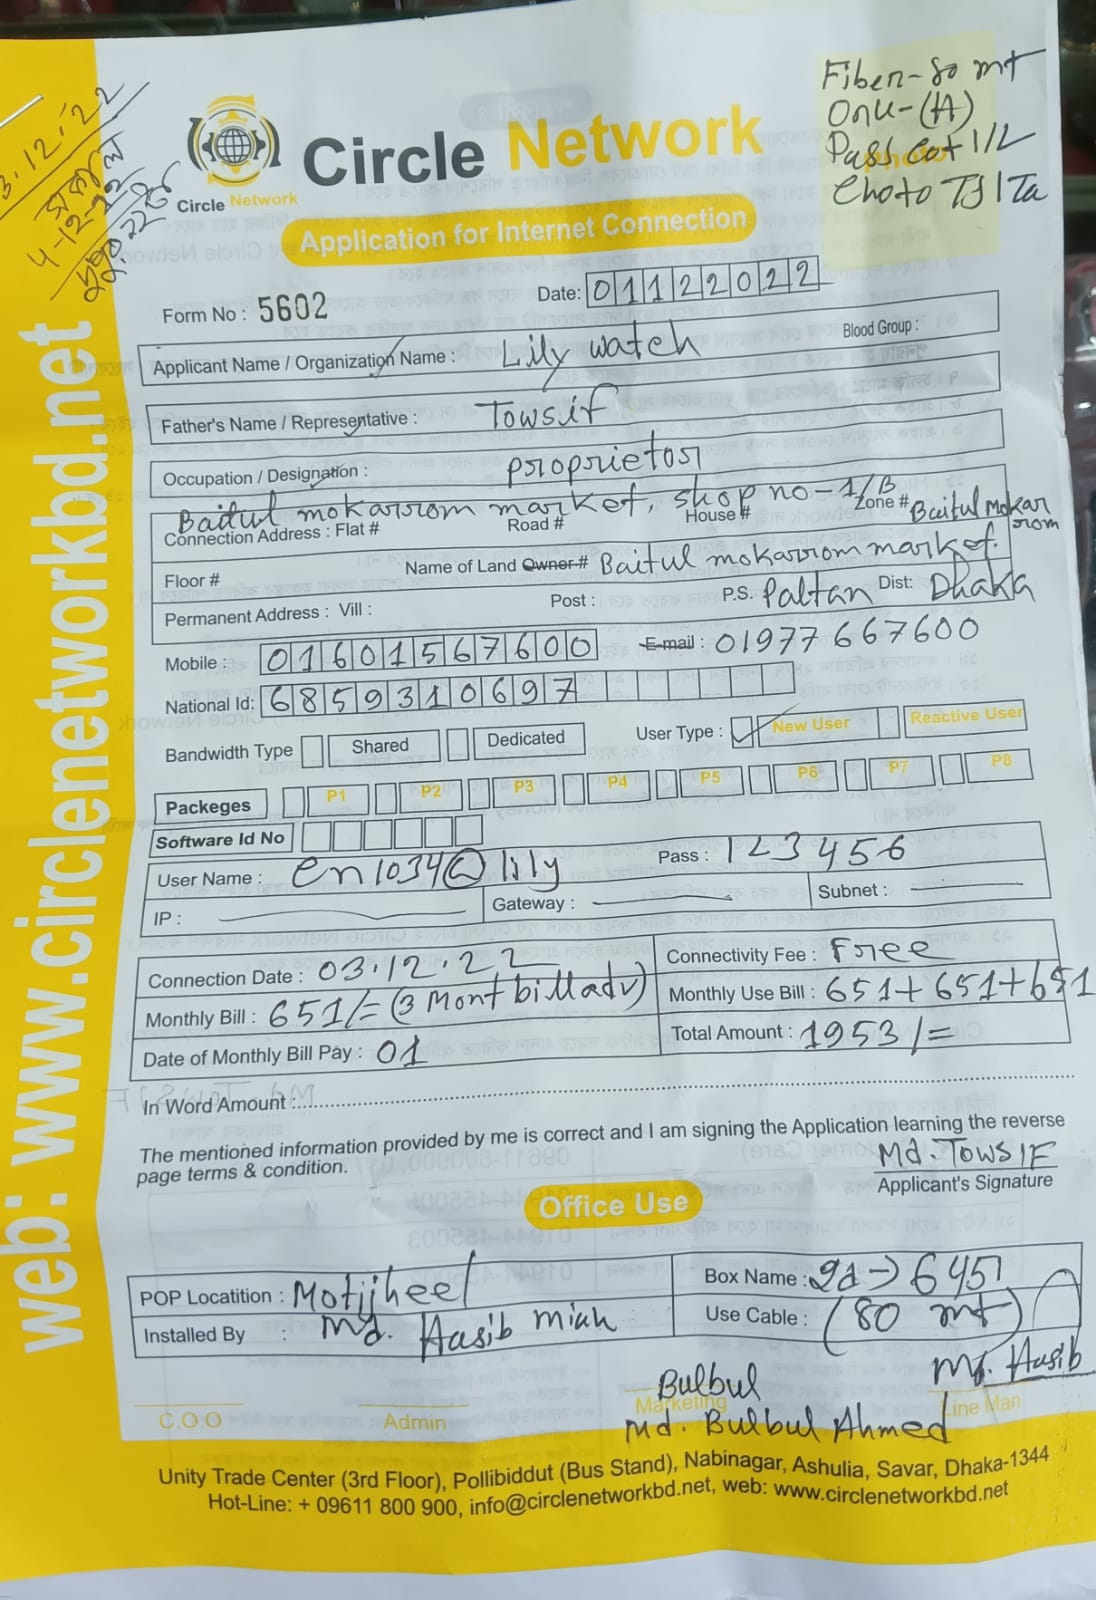 Fiber-80 mt
Onu-(A)
3.12.22
4-12-22
Circle Network
Circle Network
Application for Internet Connection
Form No : 5602
Date: 01122022
Applicant Name / Organization Name : Lily watch Blood Group :
Father's Name / Representative : Towsif
Occupation / Designation : proprietor
Baitul mokarrom market, shop no-1/B
Connection Address : Flat # Road # House # Zone # Baitul Mokarrom
Floor # Name of Land Owner # Baitul mokarrom market.
Permanent Address : Vill : Post : P.S. Paltan Dist: Dhaka
Mobile : 01601567600 E-mail : 01977 667600
National Id: 6859310697
Bandwidth Type Shared Dedicated User Type : New User Reactive User
Packeges P1 P2 P3 P4 P5 P6 P7 P8
Software Id No
User Name : en1034@lily Pass : 123456
IP : Gateway : Subnet :
Connection Date : 03.12.22 Connectivity Fee : Free
Monthly Bill : 651/= (3 Mont bill adv) Monthly Use Bill : 651+651+651
Date of Monthly Bill Pay : 01 Total Amount : 1953/=
In Word Amount :
The mentioned information provided by me is correct and I am signing the Application learning the reverse
page terms & condition.
Md. TOWSIF
Applicant's Signature
Office Use
POP Locatition : Motijheel Box Name : 6451
Installed By : Md. Hasib miah Use Cable : (80 mt)
Md. Hasib
Bulbul
C.O.O Admin Marketing Line Man
Md. Bulbul Ahmed
Unity Trade Center (3rd Floor), Pollibiddut (Bus Stand), Nabinagar, Ashulia, Savar, Dhaka-1344
Hot-Line: + 09611 800 900, info@circlenetworkbd.net, web: www.circlenetworkbd.net
web: www.circlenetworkbd.net